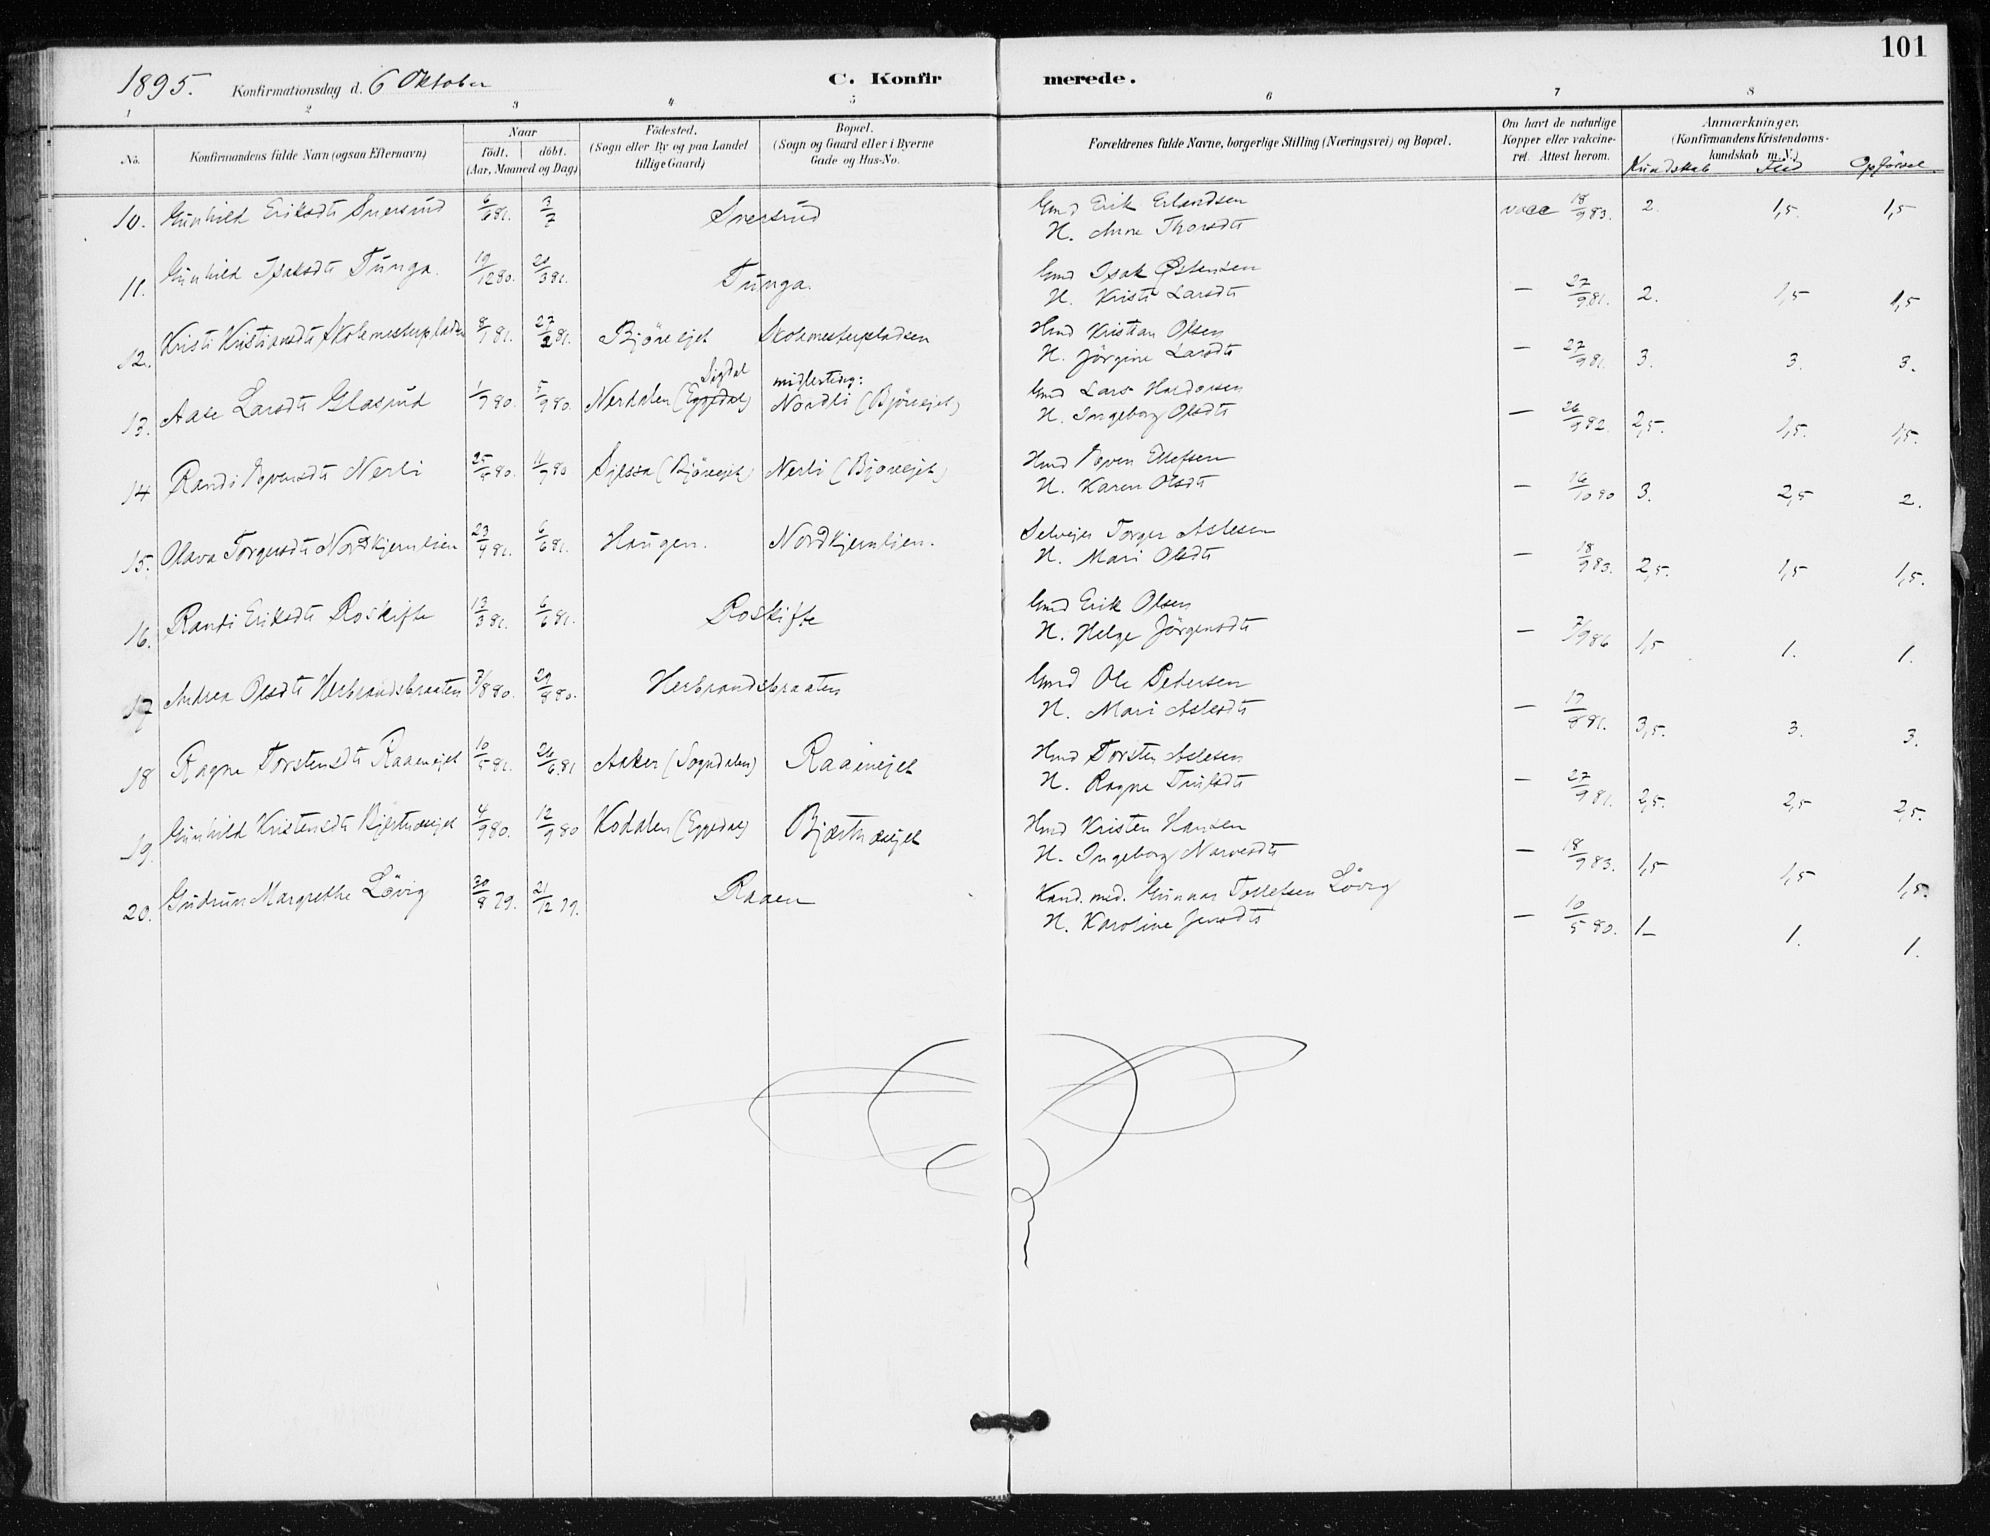 101
1895. Konfirmationsdag d. 6 Oktober C. Konfirmerede.
1 2 3 4 5 6 7 8
No. Konfirmandens fulde Navn (ogsaa Efternavn) Naar født. døbt. (Aar, Maaned og Dag) Fødested. (Sogn eller By og paa Landet tillige Gaard) Bopæl. (Sogn og Gaard eller i Byerne Gade og Hus-No. Forældrenes fulde Navne, borgerlige Stilling (Næringsvei) og Bopæl. Om havt de naturlige Kopper eller vakcineret. Attest herom. Anmærkninger. (Konfirmandens Kristendomskundskab m. V.)
Kundskab Flid Opførsel
10. Gunhild Eriksdtr Snersrud 6/6 81. 3/7 Snersrud Gmd Erik Erlandsen vacc 18/9 83. 2. 1,5. 1,5
H. Anne Thorsdtr
11. Gunhild Isaksdtr Tunga. 19/12 80. 20/3 81. Tunga. Gmd Isak Østensen
H. Kristi Larsdtr — 27/9 81. 2. 1,5 1,5
12. Kristi Kristiansdtr Skolemesterpladsen 8/1 81. 27/2 81. Bjøreejet Skolemesterpladsen Hmd Kristian Olsen
H. Jørgine Larsdtr — 27/9 81. 3. 3. 3.
13. Aase Larsdtr Glasrud 1/7 80. 5/9 80. Nerdalen (Eggedal) Sigdal midlertidig: Nordli (Bjøreejet) Gmd Lars Haldorsen
H. Ingeborg Olsdtr — 26/9 82. 2,5. 1,5. 1,5.
14 Randi Evensdtr Nerli 25/5 80. 11/7 80 (Bjøreejet) Nerli (Bjøreejet) Hmd Even Ellefsen
H. Karen Olsdtr — 16/10 90 3. 2,5 2.
15. Olava Torgersdtr Nordkjernlien 23/4 81. 6/6 81. Haugen. Nordkjernlien. Selvejer Torger Aslesen
H. Mari Olsdtr — 18/9 83. 2,5. 1,5 1,5.
16. Randi Eriksdtr Roskifte 13/3 81. 6/6 81. Roskifte Gmd Erik Olsen
H. Helge Jørgensdtr — 7/9 86 1,5 1. 1.
17 Andrea Olsdtr Herbrandsbraaten 7/8 80. 29/8 80. Herbrandsbraaten Gmd Ole Pedersen
H. Mari Aslesdtr — 17/8 81. 3,5. 3. 3.
18 Ragne Torstensdtr Raaenejet 10/5 81. 26/6 81 Aaker (Sogndalen) Raaenejet Hmd Torsten Aslesen
H. Ragne — 27/9 81. 2,5. 2,5 2,5.
19. Gunhild Kristensdtr Bjertnæsejet 4/9 80. 12/9 80 Koddlen (Eggedal) Bjertnæsejet Hmd Kristen Hansen
H. Ingeborg Narvesdtr — 18/9 83. 1,5 1,5 1,5.
20. Gudrun Margrethe Løvig 30/8 79. 21/12 79. Raaen Kand. med. Gunnar Tollefsen Løvig
H. Karoline Jensdtr — 10/5 80. 1– 1. 1.